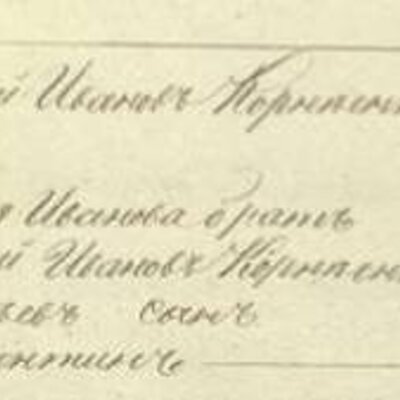 й Ивановъ Корниен
я Иванова братъ
ей Ивановъ Корниен
ьевъ сынъ
онтинъ